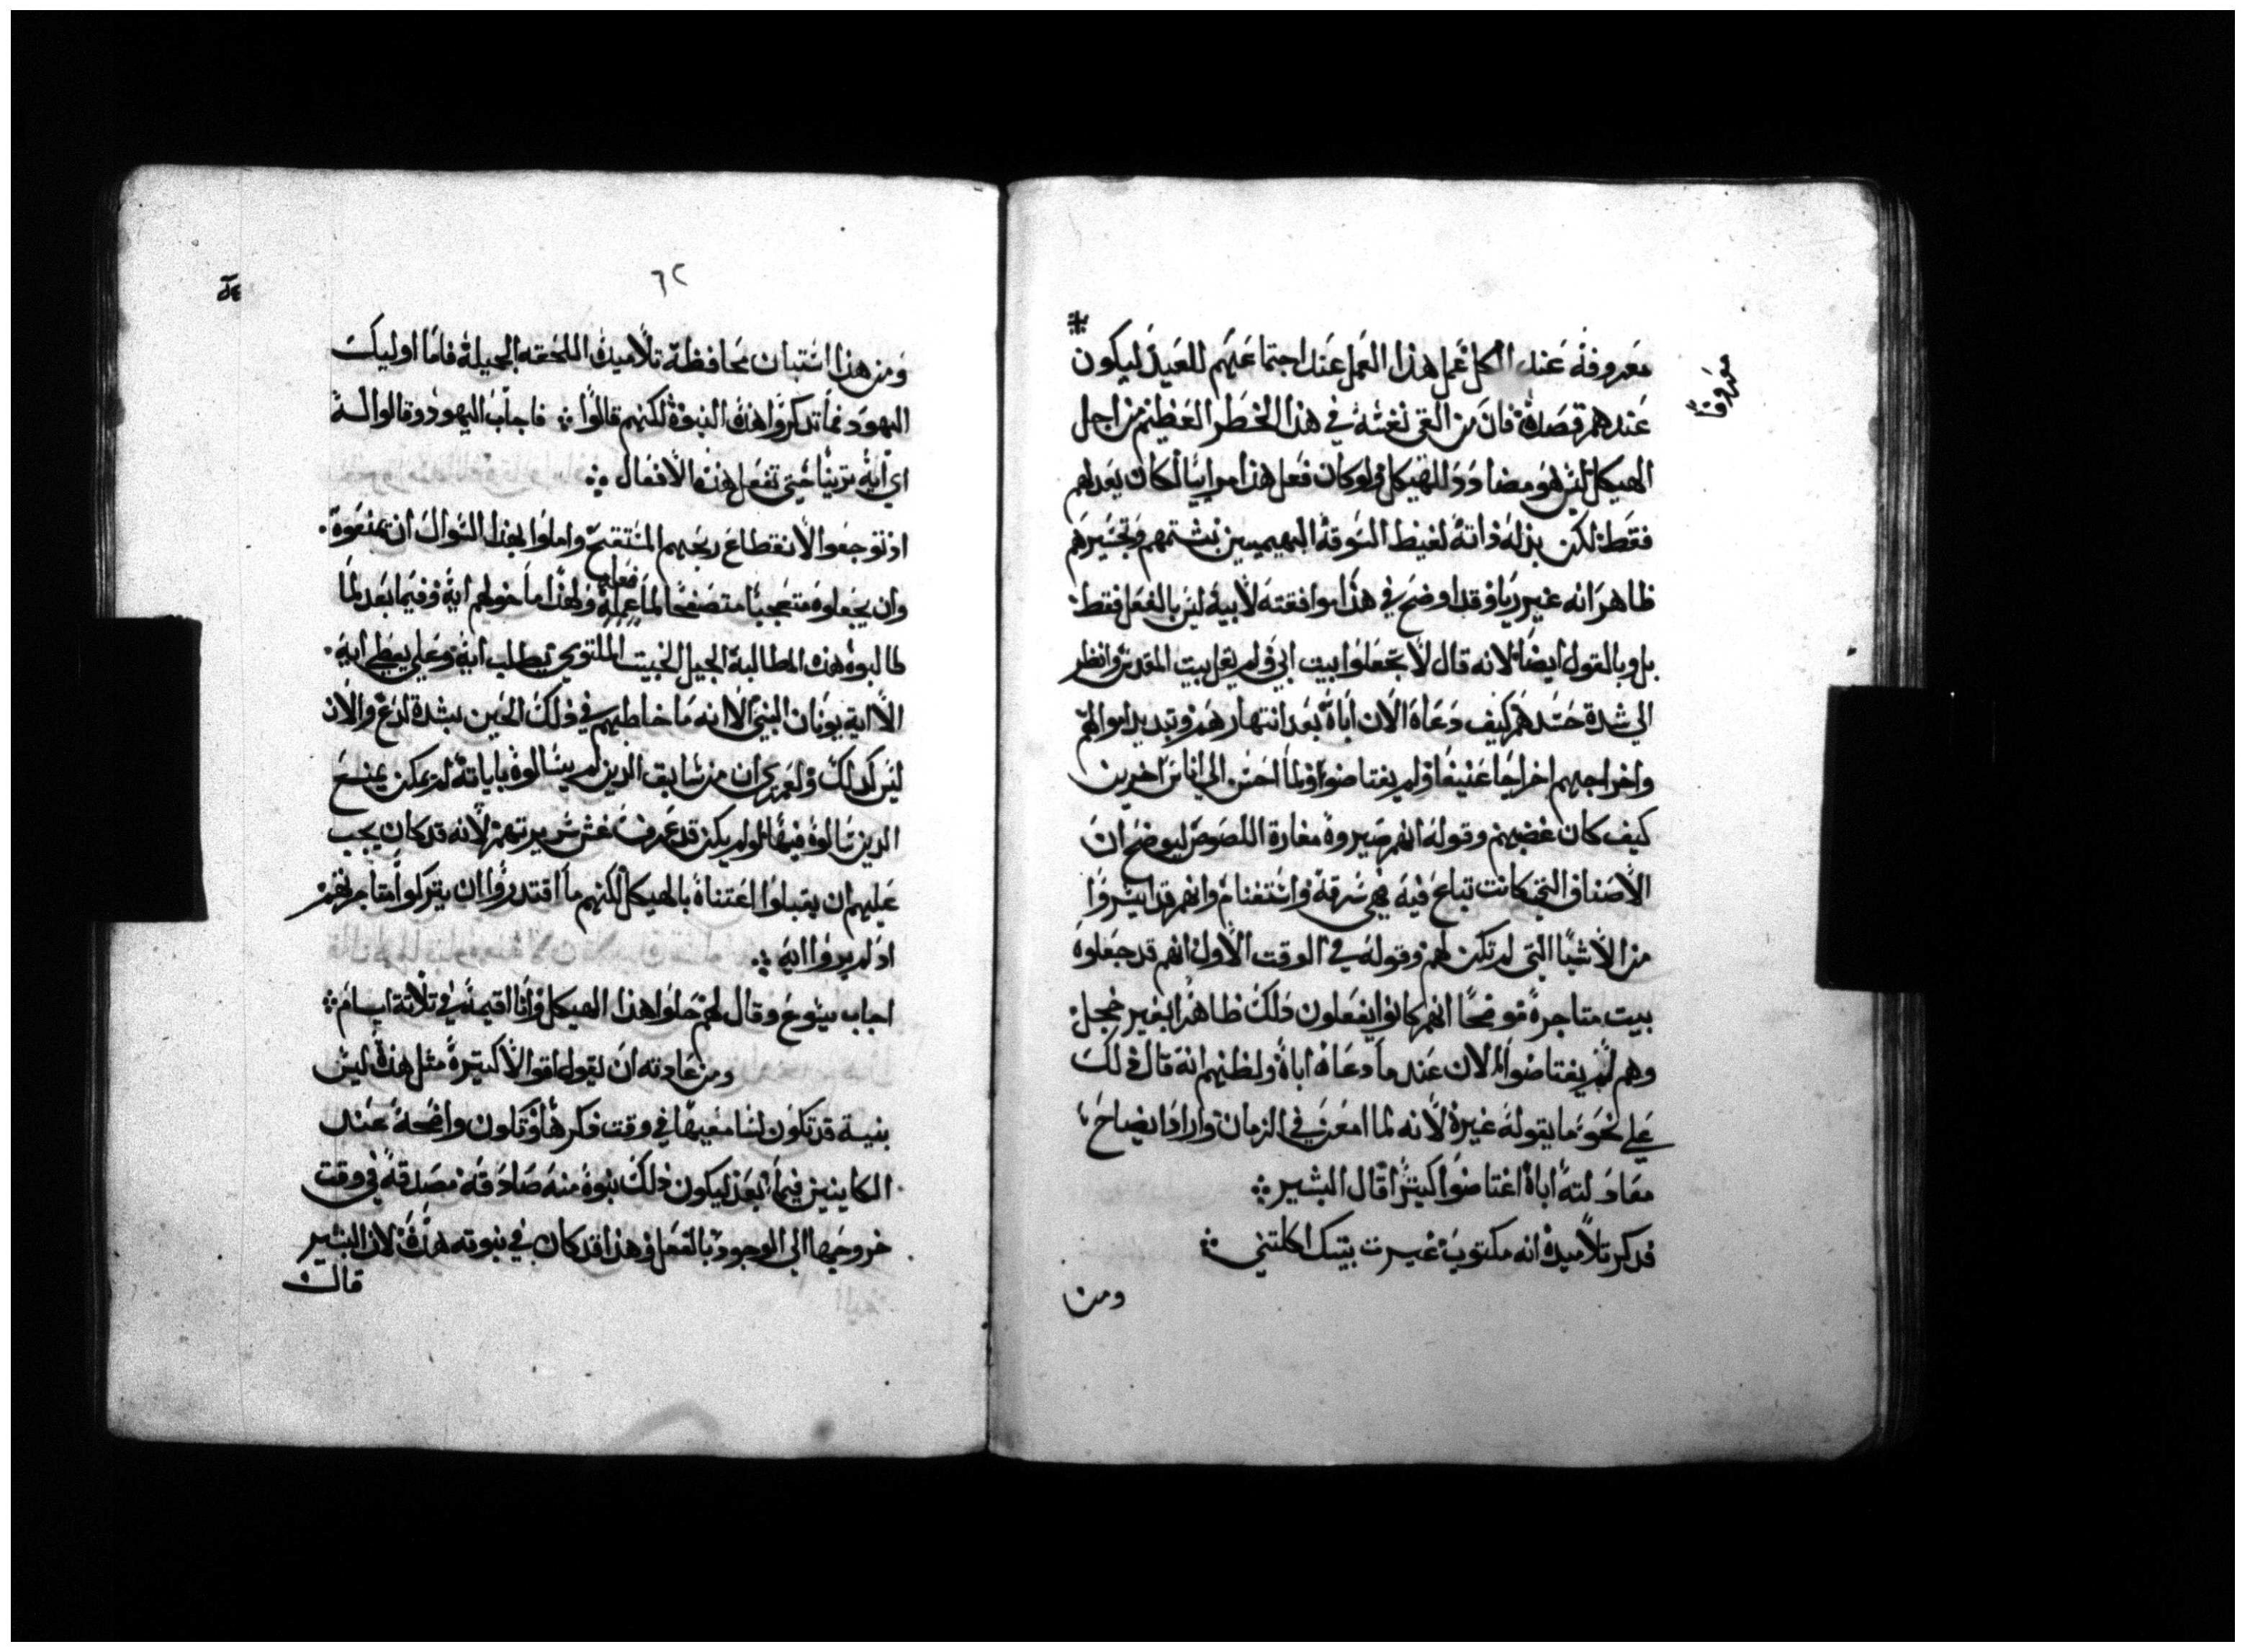 معروفه عند الكل عمل هذا العمل عند اجتماعهم للعيد ليكون
معروفاً
عندهم قصده فان من القى نفسه في هذا الخطر العظيم من اجل
الهيكل ليس هو مضادد للهيكل ولو كان فعل هذا مراييا لكان يعدلهم
فقط لكن بذله ذاته لغيظ السوقه البهيميين بشتمهم وتجسيرهم
ظاهر انه غير ريا وقد اوضح في هذا موافقته لابيه ليس بالفعل فقط
بل وبالقول ايضا لانه قال لا تجعلوا بيت ابي ولم يقل بيت المقدس وانظر
الي شدة حسدهم كيف دعاه الان اباه بعد انتهارهم وتبديد اموالهم
واخراجهم اخراجا عنيفا ولم يغتاضوا ولما احسن الي اناس اخرين
كيف كان غضبهم وقوله انهم صيروه مغارة اللصوص ليوضح ان
الاصناف التي كانت تباع فيه هي سرقه واستغنام وانهم قد ايسروا
من الاشيا التي لم تكن لهم وقوله في الوقت الاول انهم قد جعلوه
بيت متاجرة موضحا انهم كانوا يفعلون ذلك ظاهرا بغير خجل
وهم لم يغتاضوا الان عند ما دعاه اباه ولظنهم انه قال ذلك
علي نحو ما يقوله غيره لانه لما امعن في الزمان واراد ايضاح
معادلته اباه اغتاضوا كيثرا قال البشير
فدكر تلاميده انه مكتوب غيرت بيتك اكلتني
ومن
٦٢
ومن هذا استبان محافظة تلاميده اللحقه الجميلة فاما اوليك
اليهود فما تدكروا هذه النبوة لكنهم قالوا فاجاب اليهود وقالوا له
اي ايه ترينا حتي تفعل هذه الافعال
اذ توجعوا لانقطاع ربحهم المستقبح واملوا بهذا السوال ان يمنعوه
وان يجعلوه متعجبا متصفحا لما عمله فعله ولهذا ما خولهم اية وفيما بعد لما
طالبوه هذه المطالبة الجيل الخبيت الملتوي يطلب اية وعلي يعطي اية
الا اية يونان النبي الا انه ما خاطبهم في ذلك الحين بشدة لدع والان
ليس كدلك ولعمري ان من سابق الدين لم يسالوه باياته لم يمكن يمنع
الدين سالوه فيها لو لم يكن قد عرف غش سيرتهم لانه قد كان يجب
عليهم ان يقبلوا اعتناه بالهيكل لكنهم ما اقتدروا ان يتركوا متاجرتهم
اد لم يروا ايه
اجاب يسوع وقال لهم حلوا هذا الهيكل وانا اقيمه في تلاتة ايام
ومن عادته ان يقول اقوالا كتيرة مثل هذه ليس
بنيه قد تكون لسامعيها في وقت دكرها وتكون واضحة عند
الكاينين فيما بعد ليكون ذلك نبوه منه صادقه مصدقه في وقت
خروجها الي الوجود بالفعل وهذا قد كان في نبوته هذه لان البشير
قال